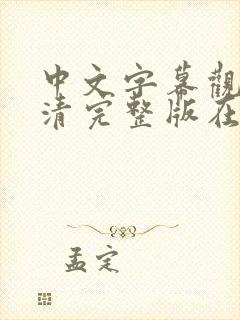 中文字幕觀
清完整版在
孟定